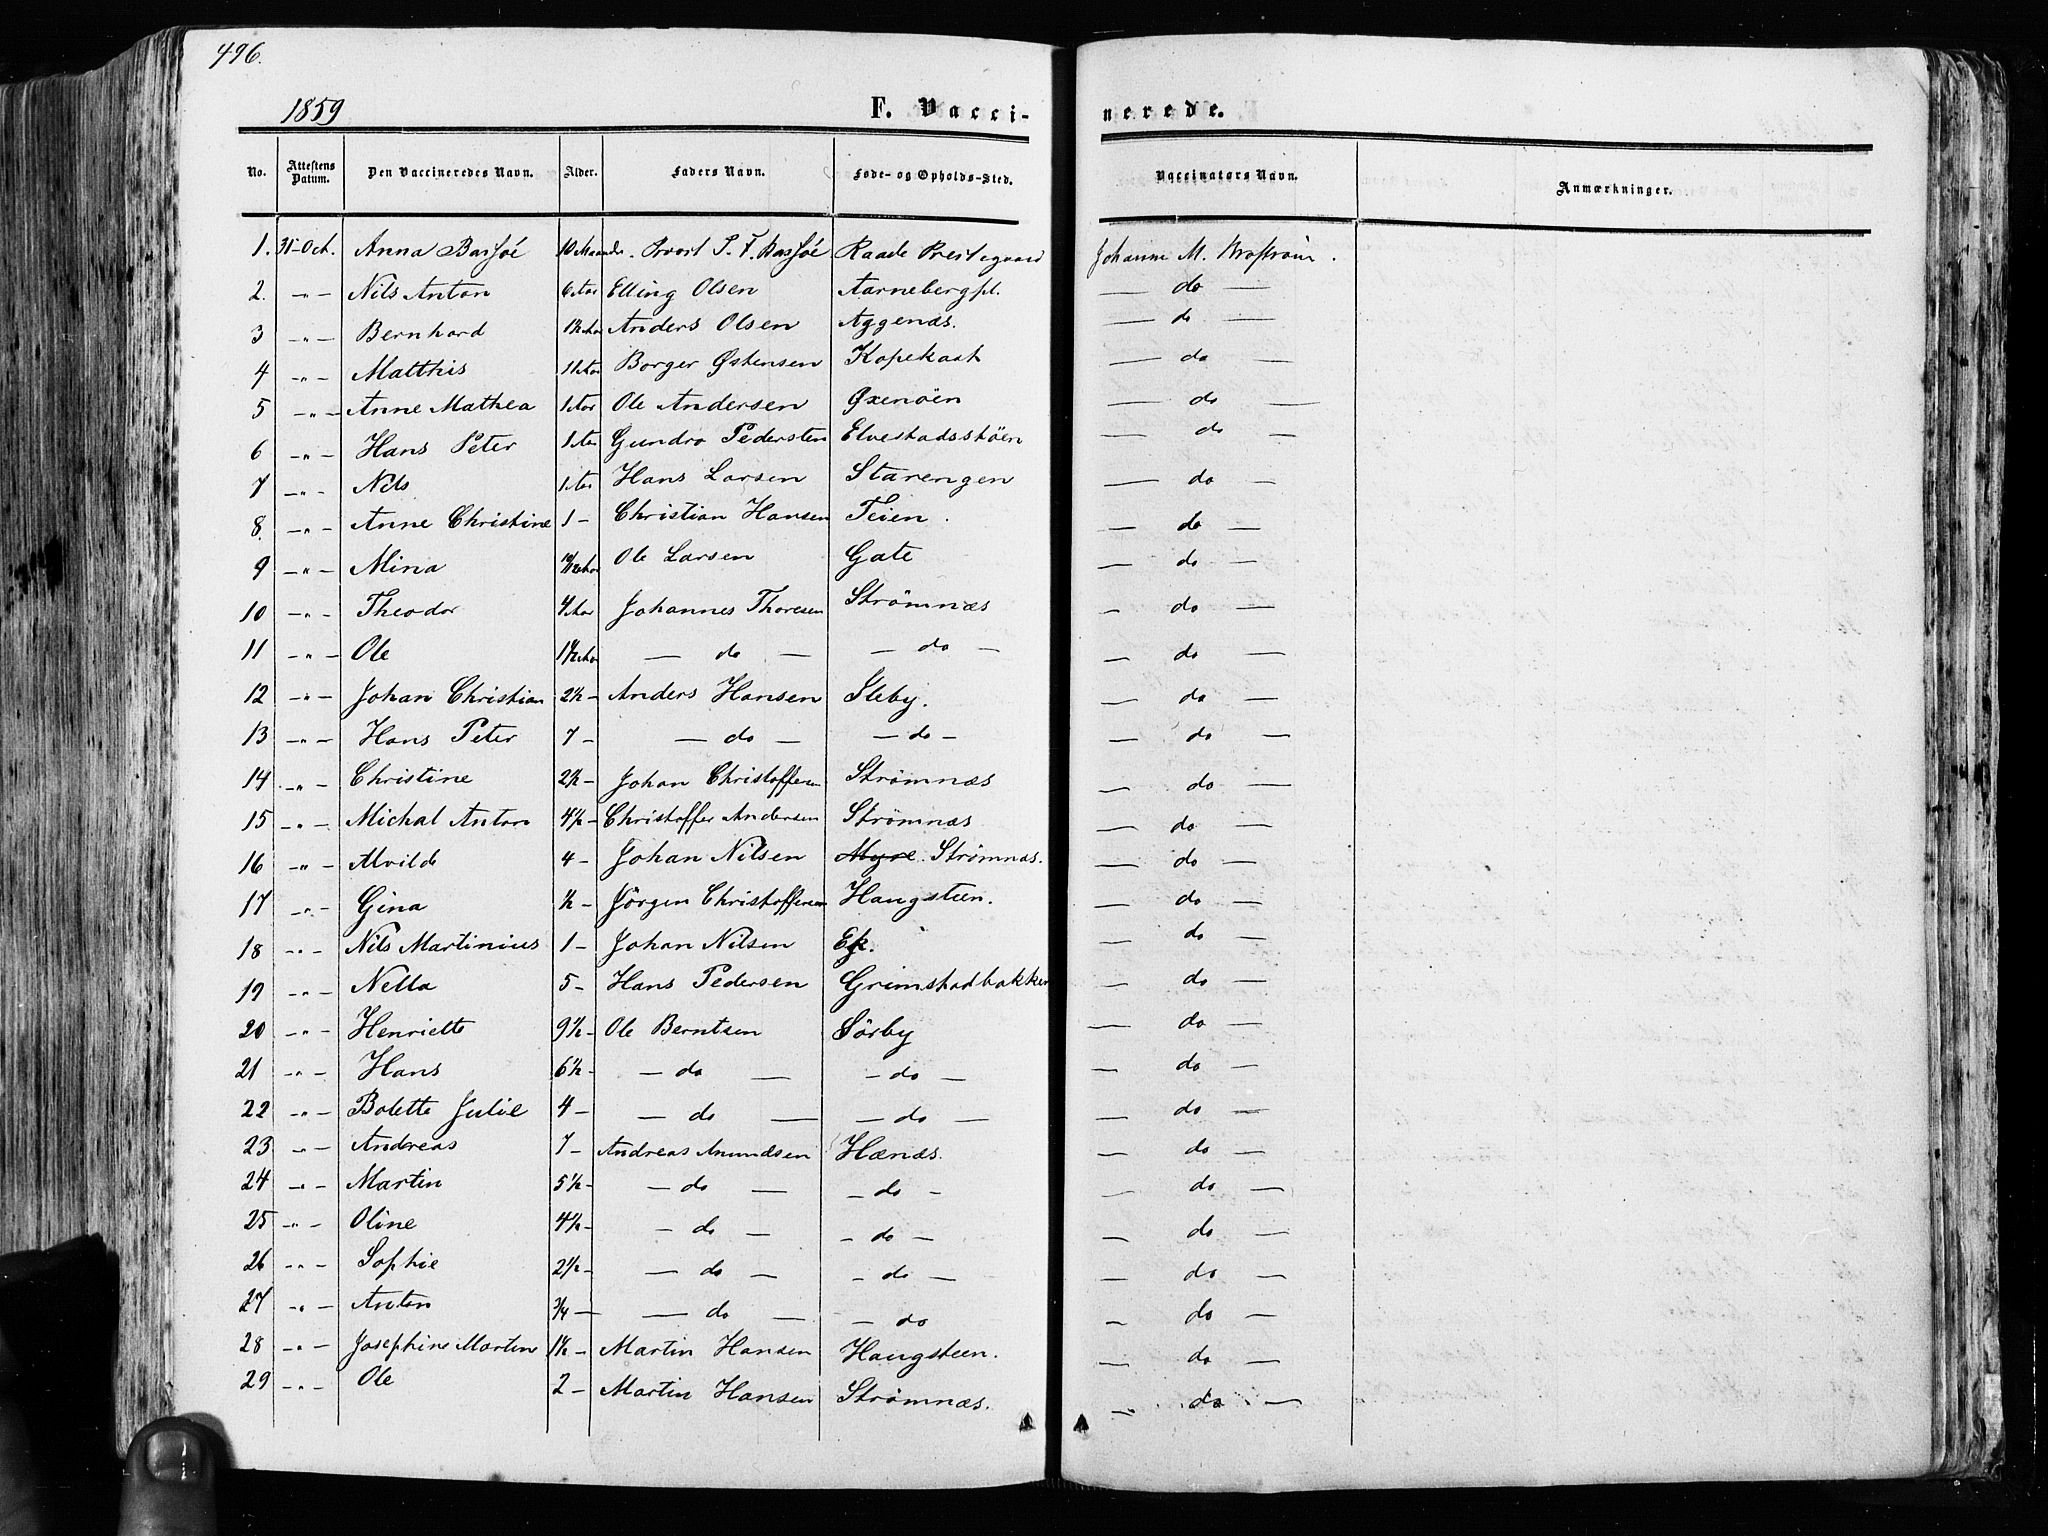 496.
1859
F. Vaccinerede.
No. Attestens Datum. Den Vaccineredes Navn. Alder. Faders Navn. Føde- og Opholds-Sted. Vaccinators Navn. Anmærkninger.
1. 31 Oct. Anna Bassøe 10 Maaneder. Provst P. F. Bassøe Raade Prestegaard Johanne M.
2. -"- Nils Anton 6 Aar Elling Olsen Aarnebergpl. — do —
3 -"- Bernhard 1½ Aar Anders Olsen Aggenæs. — do —
4 -"- Matthis 1 Aar Borger Østensen Kopekast — do —
5 -"- Anne Mathea 1 Aar Ole Andersen Øxenöen — do —
6 -"- Hans Peter 1 Aar Gundro Pedersten Elvestadsstöen — do —
7 -"- Nils 1 Aar Hans Larsen Starengen — do —
8. -"- Anne Christine 1 - Christian Hansen Teien. — do —
9 -"- Mina 10/12 Aar Ole Larsen Gate — do —
10 -"- Theodor 4 Aar Johannes Thoresen Strömnæs — do —
11 -"- Ole 1½ Aar — do — — do — — do —
12 -"- Johan Christian 2½ - Anders Hansen Sleby. — do —
13 -"- Hans Peter 7 - — do — — do — — do —
14 -"- Christine 2½ - Johan Christoffersen Strømnæs — do —
15 -"- Michal Anton 4½ - Christoffer Andersen Strømnæs — do —
16 -"- Alvilde 4 - Johan Nilsen Myre. Strømnæs. — do —
17 -"- Gina ½ - Jörgen Christoffersen Haugsteen. — do —
18 -"- Nils Martinius 1 - Johan Nilsen Ek. — do —
19 -"- Nella 5 - Hans Pedersen Grimstadbakken — do —
20 -"- Henriette 9½ - Ole Berntsen Sörby — do —
21 -"- Hans 6½ - — do — — do — — do —
22 -"- Bolette Julie 4 - — do — — do — — do —
23 -"- Andreas 7 - Andreas Amundsen Hænæs. — do —
24 -"- Martin 5½ - — do — — do — — do —
25 -"- Oline 4½ - — do — — do — — do —
26 -"- Sophie 2½ - — do — — do — — do —
27 -"- Anton ¾ - — do — — do — do —
28 -"- Josephine Martine 1½ - Martin Hansen Haugsteen. — do —
29 -"- Ole 2 - Martin Hansen Strømnæs. — do —